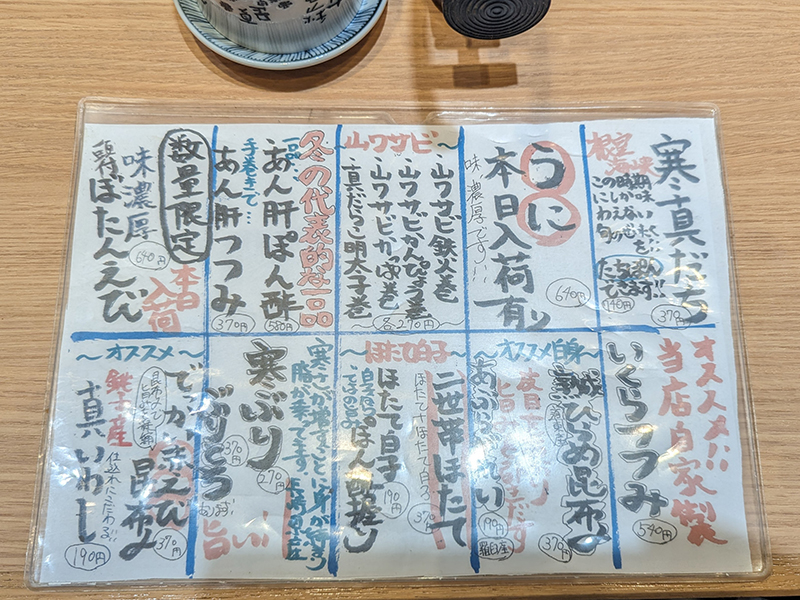 寒真だち
370円
たち天ぷら
140円
うに
本日入荷有り
味濃厚です!!
640円
山ワサビ〜
・山ワサビ鉄火巻
・山ワサビかんぴょう巻
・山ワサビかっぱ巻
・真だらこ明太子巻
各270円
冬の代表的な一品
一品
あん肝ぽん酢
580円
手巻きで…
あん肝つつみ
370円
数量限定
味濃厚
ぼたんえび
640円
本日入荷
オススメ!!
当店自家製
いくらつつみ
540円
〜オススメ白身〜
熟成ひらめ昆布〆
370円
あぶらがれい
199円
ほたて白子〜
二世帯ほたて
ほたて+ほたて白子
370円
ほたて白子
ぽん酢握り
190円
寒さが増すごとに身が締り
脂が乗ってます
寒ぶり
270円
ぶりとろ
370円
旨い!
〜オススメ〜
でっかい赤えび
昆布〆
370円
銚子産
真いわし
仕込みにこだわる!!
190円